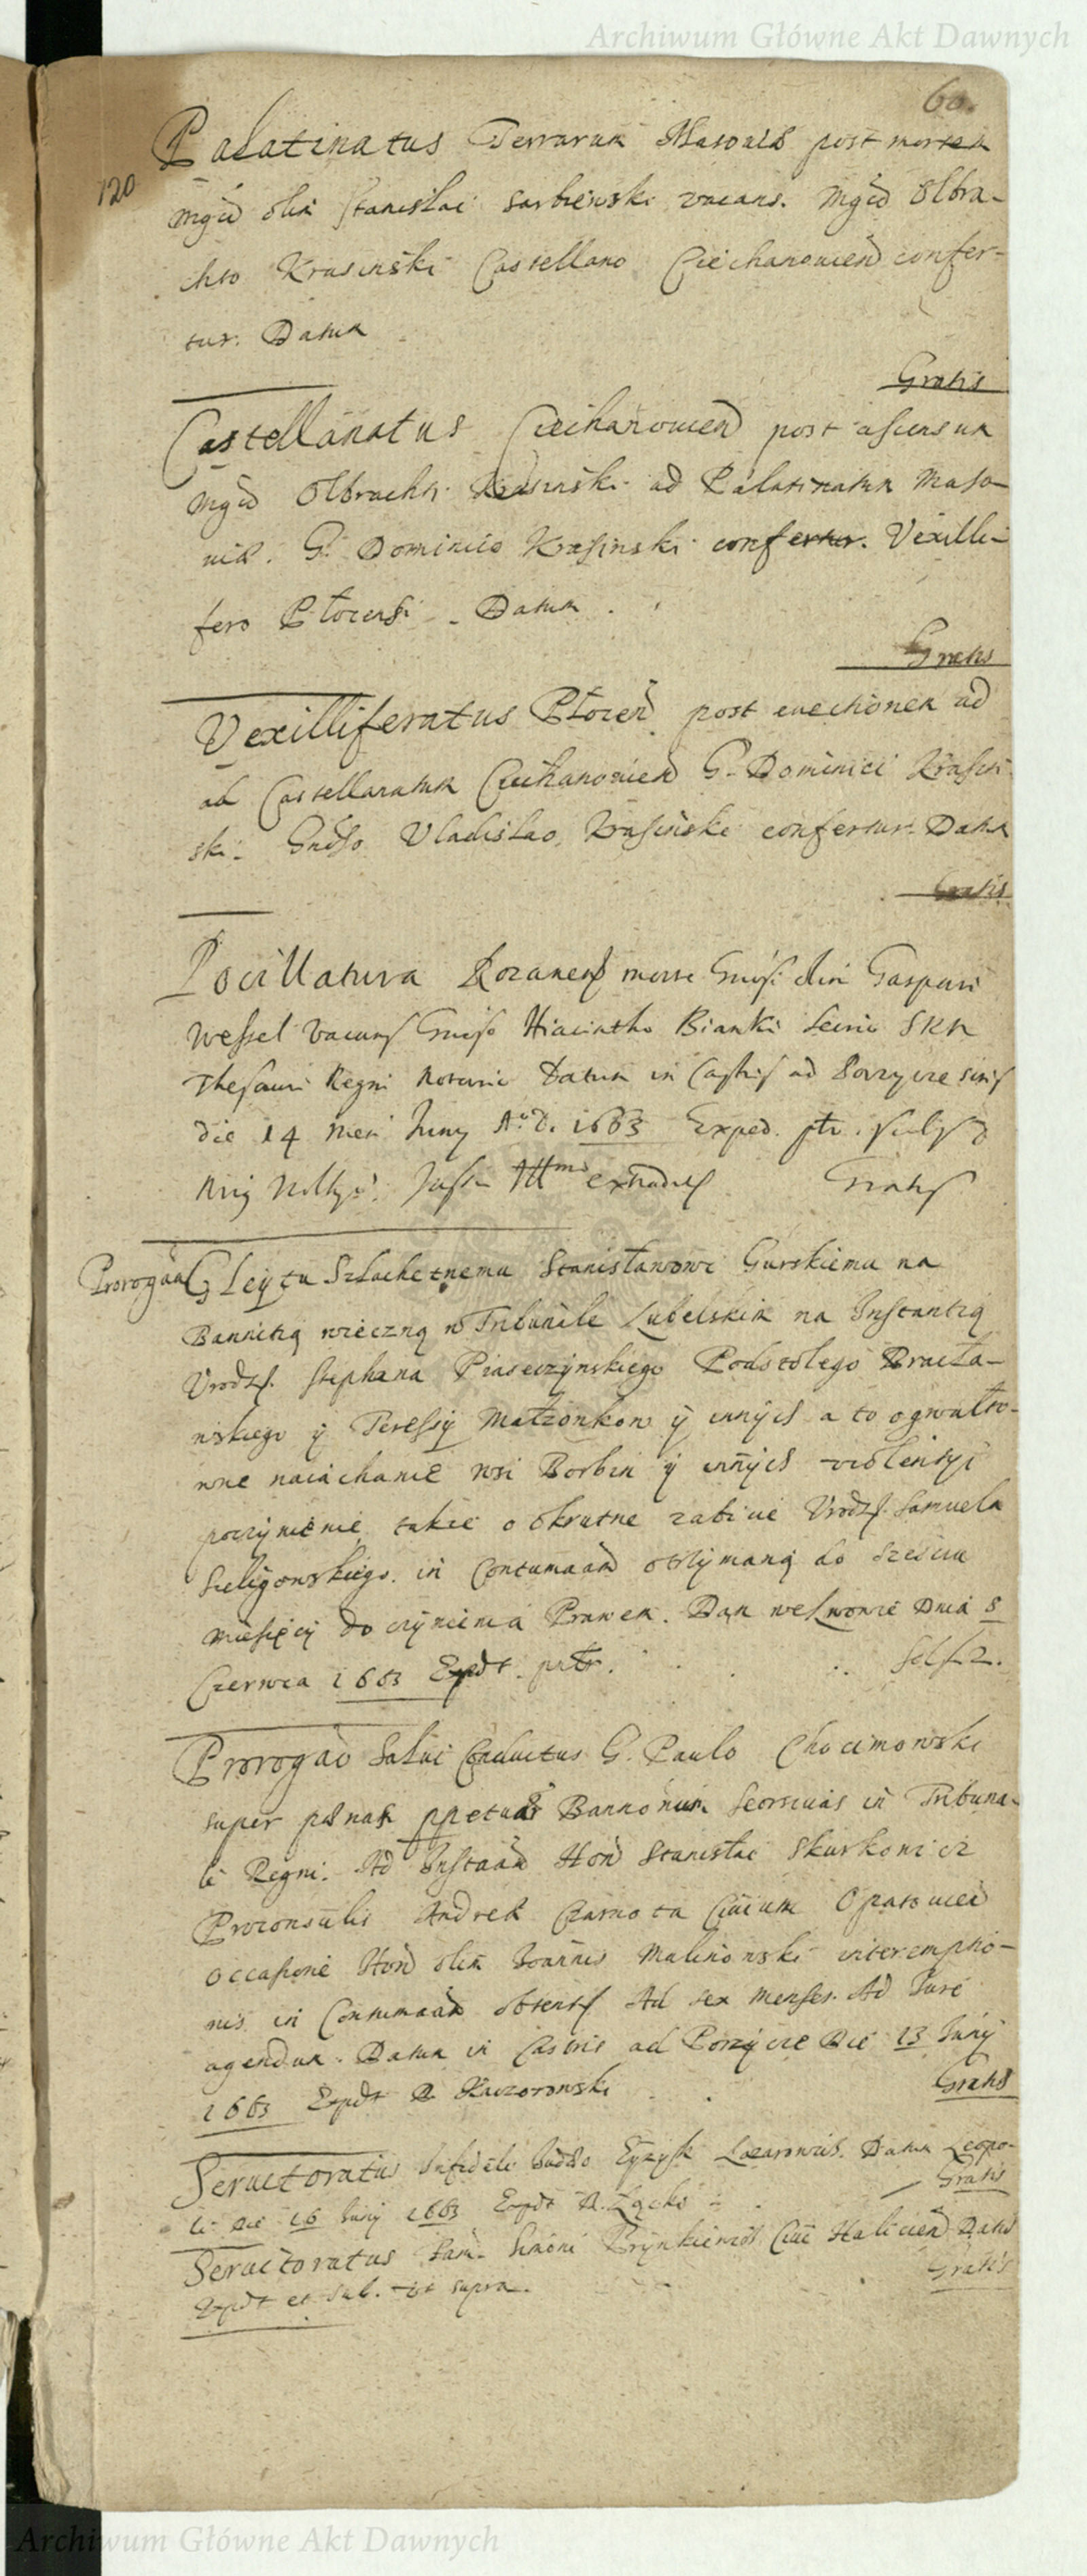 Archiwum Główne Akt Dawnych
60.
120
Palatinatus Terrarum Masoviæ post mortem
Mgcd olim Stanislai Sarbiewski vacans. Mgcd Olbra-
chto Krasinski Castellano Ciechanoviend confer-
tur. Datum
Gratis
Castellanatus Ciechanoviend post ascensum
Mgcd Olbrachti Krasinski ad Palatinatum Maso-
viæ. G. Dominico Krasinski confertur. Vexilli-
fero Płocensi. Datum.
Gratis
Vexilliferatus Płocen post evectionem ad
ad Castellanatum Ciechanoviend G. Dominici Krasin-
ski. Gndso Vladislao Krasinski confertur. Datum
Gratis
Pocillatura Rozanens morte Gnosi olim Gaspari
Wessel vacans Gnoso Hiacintho Bianki Secrio SRM
Thesauri Regni Notario Datum in Castris ad
die 14 Men Juny A. D. 1663 Exped. ptr.
Gratis
Prorogaō Gleytu Szlachetnemu Stanisławowi Gurskiemu na
Bannitią wieczną w Tribunale Lubelskim na Instantią
Urodz. Stephana Piaseczynskiego Podstolego Bracła-
wskiego y Teressy Małzonkow y innych a to o gwałto-
wne naiachanie wsi Borbin y innych violentyi
poczynienie takze o okrutne zabicie Urodz. Samuela
Seligowskiego in Contumaām otrzymaną do szesciu
miesięcy do czynienia Prawem. Dan we Lwowie Dnia 8
Czerwca 1663 Expdt. prtr. Sol. 2.
Prorogaō Salvi Conductus G. Paulo Chocimowski
super pænam ppetuæ Bannonum Seorsivas in Tribuna-
li Regni. Ad Instaām Hon Stanislai Skurkowicz
Proconsulis Andreæ Czarnota Civium Opatovien
occasione Hon olim Joannis Malinowski interemptio-
nis in Contumaām obtent Ad sex menses. Ad Jure
agendum. Datum in Castris ad Porzycze Die 13 Juny
1663 Expdt R Kaczorowski Gratis
Servitoratus Infideli Judæo Lazarowicz. Datum Leopo-
li Die 16 Juny 1663 Expdt R. Łącki Gratis
Servitoratus Fam. Simoni Brynkiewicz Civi Halicien Datum
Expdt et Sub. ut supra. Gratis
Archiwum Główne Akt Dawnych